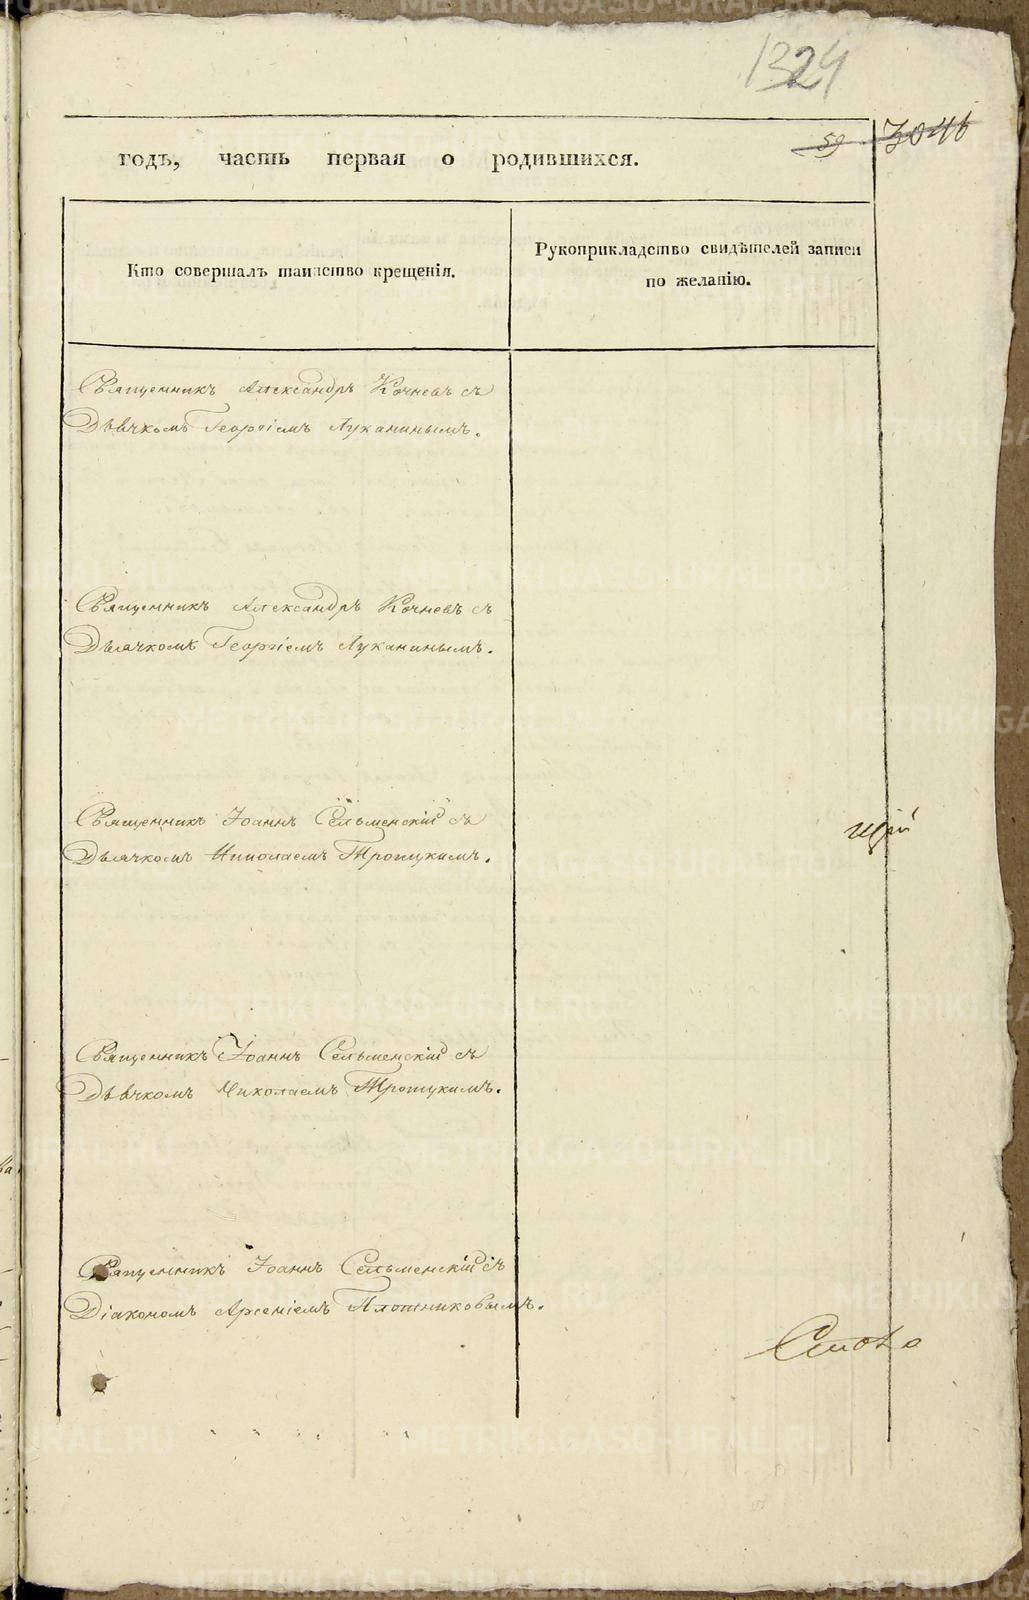 1324
59 3046
годъ, часть первая о родившихся.
Кто совершалъ таинство крещенія.
Рукоприкладство свидѣтелей записи
по желанію.
Священникъ Александръ Кочневъ съ
Дьячкомъ Георгіемъ Луканинымъ.
Священникъ Александръ Кочневъ съ
Дьячкомъ Георгіемъ Луканинымъ.
Священникъ Іоаннъ Сельменскій съ
Дьячкомъ Николаемъ Троицкимъ.
Священникъ Іоаннъ Сельменскій съ
Дьячкомъ Николаемъ Троицкимъ.
Священникъ Іоаннъ Сельменскій съ
Діакономъ Арсеніемъ Плотниковымъ.
METRIKI.GASO-URAL.RU